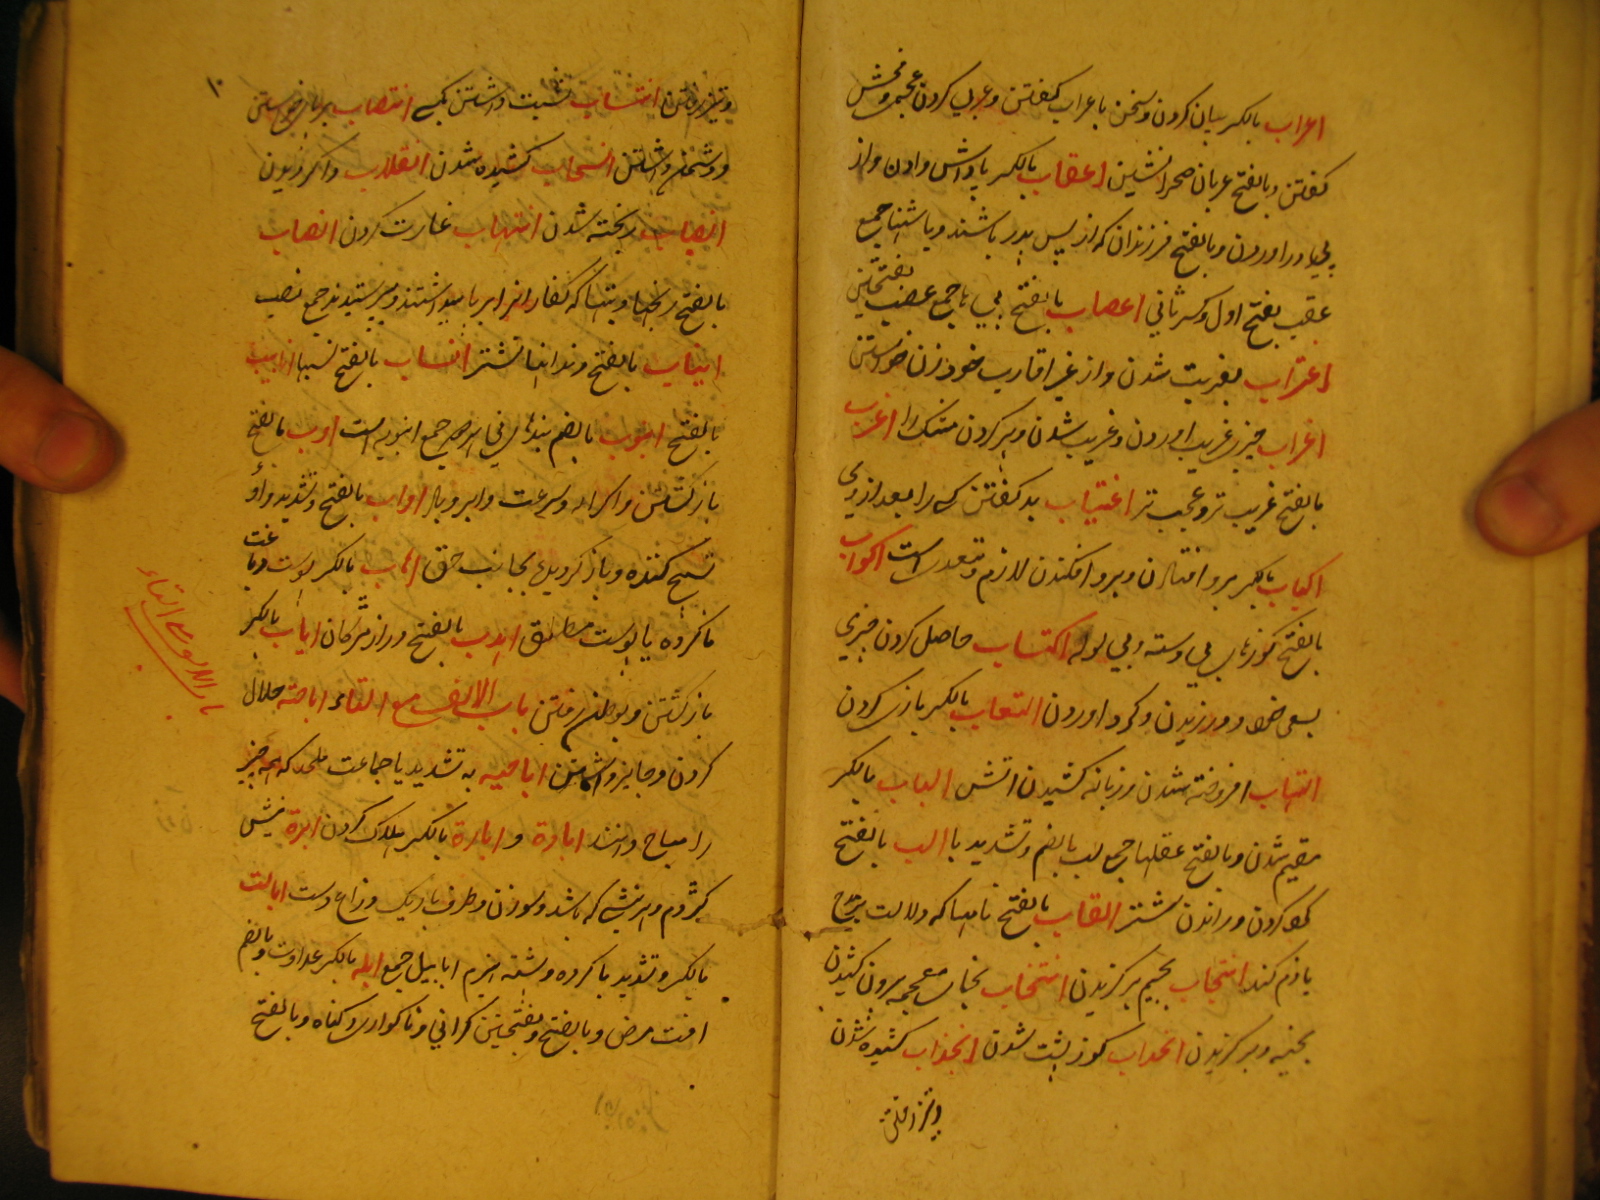 اعراب بالکسر بیان کردن و سخن باعراب گفتن و عربی کردن عجمی و فحش
گفتن و بالفتح عربان صحرانشین اعقاب بالکسر پاداش دادن و از
پی در اوردن و بالفتح فرزندان که از پس پدر باشند و پاشنها جمع
عقب بفتح اول و کسر ثانی اعصاب بالفتح پی ها جمع عصب بفتحتین
اغتراب بغربت شدن و از غیر اقارب خود زن خواستن
اغراب چیز غریب اوردن و غریب شدن و پر کردن مشک را اغرب
بالفتح غریب تر و عجب تر اغتیاب بد گفتن کسی را بعد از وی
اکباب بالکسر برو افتادن و برو افکندن لازم و متعدی است اکواب
بالفتح کوزهای بی دسته و بی لوله اکتساب حاصل کردن چیزی
بسعی خود و ورزیدن و گرد اوردن التعاب بالکسر بازی کردن
التهاب افروخته شدن و زبانه کشیدن اتش الباب بالکسر
مقیم شدن و بالفتح عقلها جمع لب بالضم و تشدید با الب بالفتح
گرد کردن و راندن شتر القاب بالفتح نامها که دلالت بر مدح
یا ذم کند انتجاب بجیم برگزیدن انتخاب بخاء معجمه بیرون کشیدن
بخیه و برگزیدن انحداب کوز پشت شدن انجذاب کشیده شدن
و تیز رفتن
۱۰
و تیز رفتن انتساب نسبت داشتن بکسی انتصاب برپای خواستن
و دشمن داشتن انسحاب کشیده شدن انقلاب واگردیدن
انصباب ریخته شدن انتهاب غارت کردن انصاب
بالفتح رنجها و بتها که کفار انرا برپا میداشتند و میپرستیدند جمع نصب
انیاب بالفتح دندانها نشتر انساب بالفتح نسبها انابیب
بالفتح انبوب بالضم بندهای نی انبوب جمع انبوبه است اوب بالفتح
بازگشتن و اکراه و سرعت و ابر و باد اواب بالفتح و تشدید واو
تسبیح کننده و بازگردیده بجانب حق اهاب بالکسر پوست دباغت
ناکرده یا پوست مطلق اهدب بالفتح دراز مژگان ایاب بالکسر
بازگشتن و بوطن رفتن باب الالف مع التاء اباحة حلال
کردن و جایز داشتن اباحیه به تشدید یا جماعت ملحد که همه چیز
را مباح دانند ابادة و ابارة بالکسر هلاک کردن ابرة نیش
کژدم و هر نیشی که باشد و سوزن و طرف باریک ذراع دست ابالت
بالکسر و تشدید با گروه و پشته هیزم ابابیل جمع ابله بالکسر عداوت و بالضم
افت مرض و بالفتح و بفتحتین گرانی و ناگواری و گناه و بالفتح
باب الالف مع التاء